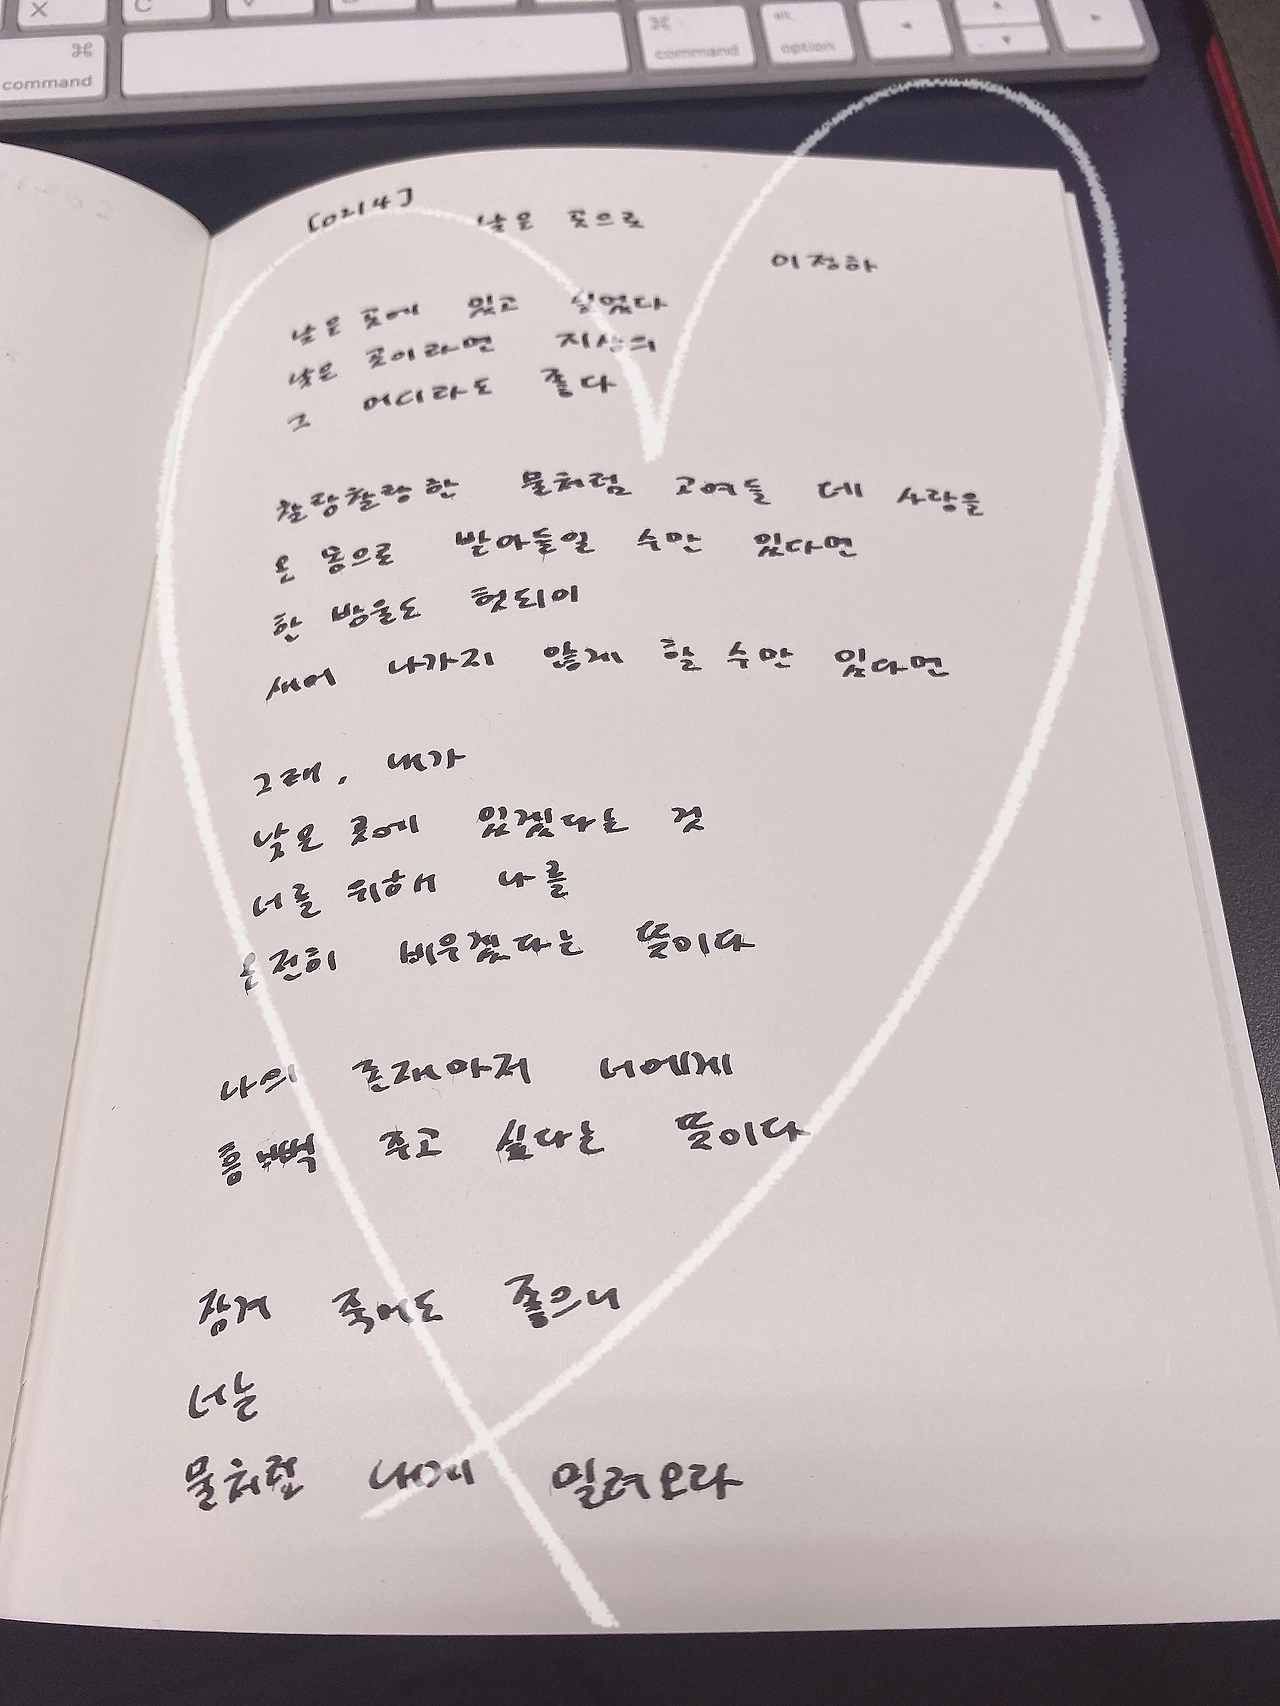 X
C
V
B
⌘
command
⌘
command
alt
option
[0214]
낮은 곳으로
이정하
낮은 곳에 있고 싶었다
낮은 곳이라면 지상의
그 어디라도 좋다
찰랑찰랑한 물처럼 고여들 데 사랑을
온 몸으로 받아들일 수만 있다면
한 방울도 헛되이
새어 나가지 않게 할 수만 있다면
그래, 내가
낮은 곳에 있겠다는 것
너를 위해서 나를
온전히 비우겠다는 뜻이다
나의 존재마저 너에게
흠뻑 주고 싶다는 뜻이다
잠겨 죽어도 좋으니
너는
물처럼 내게 밀려오라